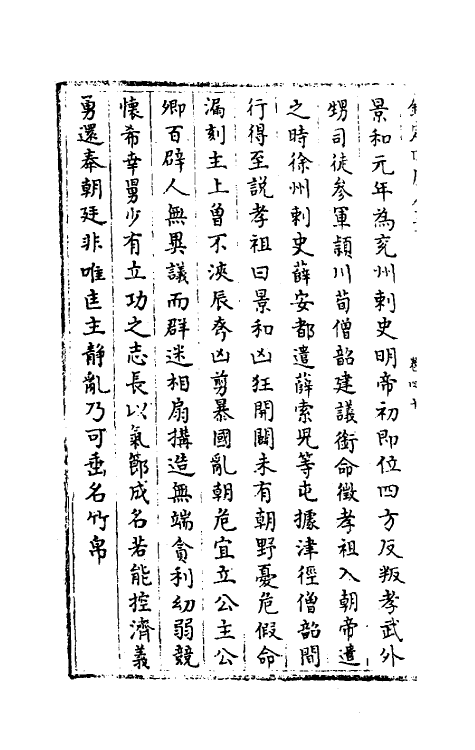 卷四十
景和元年為兖州刺史明帝初即位四方反叛孝武外
甥司徒參軍潁川荀僧韶建議銜命徵孝祖入朝帝遣
之時徐州刺史薛安都遣薛索兒等屯據津徑僧韶間
行得至説孝祖曰景和凶狂開闢未有朝野憂危假命
漏刻主上曾不浹辰夷凶剪暴國亂朝危宜立公主公
卿百辟人無異議而群迷相扇搆造無端貪利幼弱競
懷希幸舅少有立功之志長以氣節成名若能控濟義
勇還奉朝廷非唯匡主静亂乃可垂名竹帛